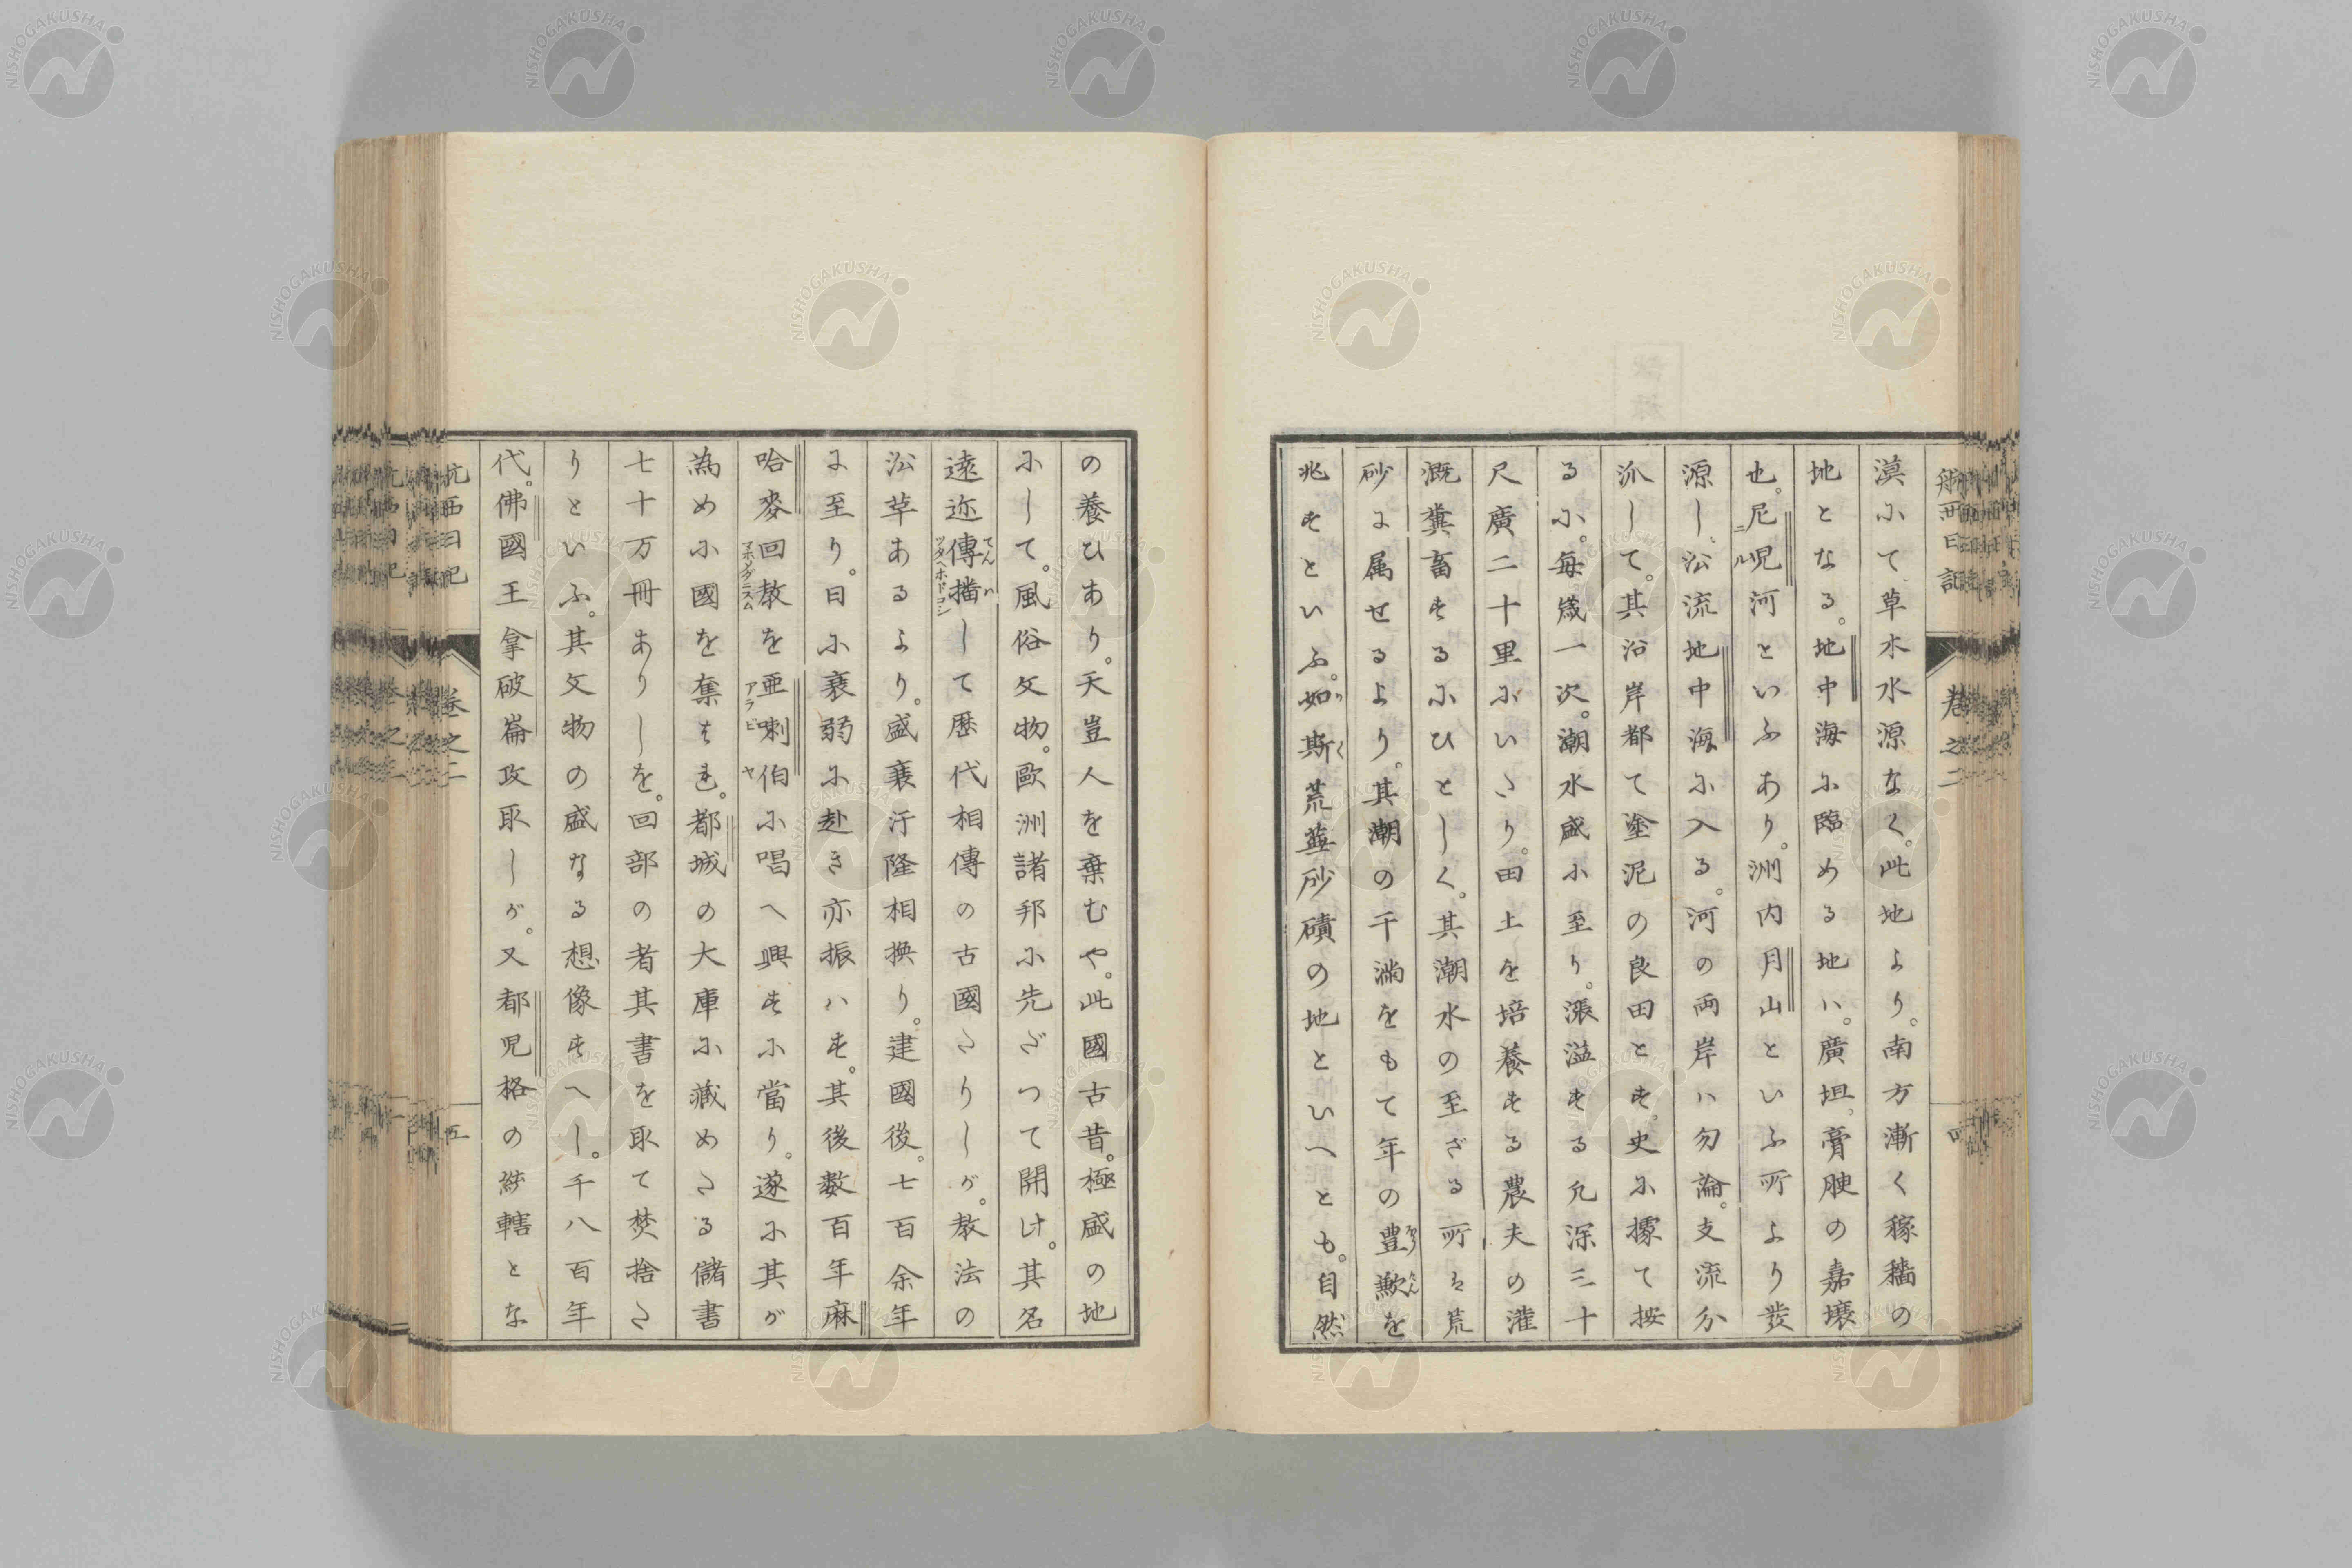 航西日記
巻之二
漠にて草木水源なく。此地より。南方漸く稼穡の
地となる。地中海に臨める地ハ。廣坦。膏腴の嘉壌
也。尼呪河といふあり。洲内月山といふ所より發
源し。沿流地中海に入る。河の両岸ハ勿論。支流分
派して。其沿岸都て塗泥の良田とす。史に據て按
るに。毎歳一次。潮水盛に至り。漲溢する凡深三十
尺廣二十里にいたり。田土を培養する農夫の灌
漑糞畜するにひとしく。其潮水の至ざる所は荒
砂に属せるより。其潮の干満をもて年の豊歉を
兆すといふ。如斯荒蓝砂磧の地といへとも。自然
の養ひあり。天豈人を棄むや。此國古昔。極盛の地
にして。風俗文物。歐洲諸邦に先ざつて開け。其名
遠迩傳播して歴代相傳の古國たりしが。教法の
沿革あるより。盛衰汙隆相換り。建國後。七百余年
に至り。日に衰弱に赴き亦振ハす。其後數百年麻
哈麥回教を亜喇伯に唱へ興すに當り。遂に其が
為めに國を奪はれ。都城の大庫に藏めたる儲書
七十万冊ありしを。回部の者其書を取て焚捨た
りといふ。其文物の盛なる想像すへし。千八百年
代。佛國王拿破崙攻取しが。又都児格の統轄とな
航西日記
巻之二
五